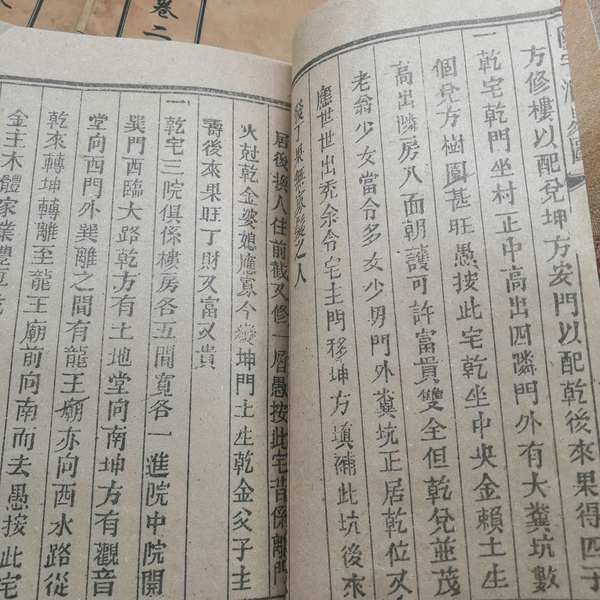 方修樓以配兌坤方安門以配乾後來果得四子
一乾宅乾門坐村正中高出四隣門外有大糞坑數
個兌方樹園甚旺愚按此宅乾坐中央金賴土生
高出隣房八面朝護可許富貴雙全但乾兌並茂
老翁少女當令多女少男門外糞坑正居乾位又
應世世出禿余令宅主門移坤方填補此坑後來
之人
居後換人住前截又修一層愚按此宅昔係離門
火尅乾金婆媳應寡今變坤門土生乾金父子主
壽後來果旺丁財又富又貴
一乾宅三院俱係樓房各五間寬各一進院中院開
巽門西臨大路乾方有土地堂向南坤方有觀音
堂向西門外巽離之間有龍王廟亦向西水路從
乾來轉坤轉離至龍王廟前向南而去愚按此宅
金主木體家業豐
卷二